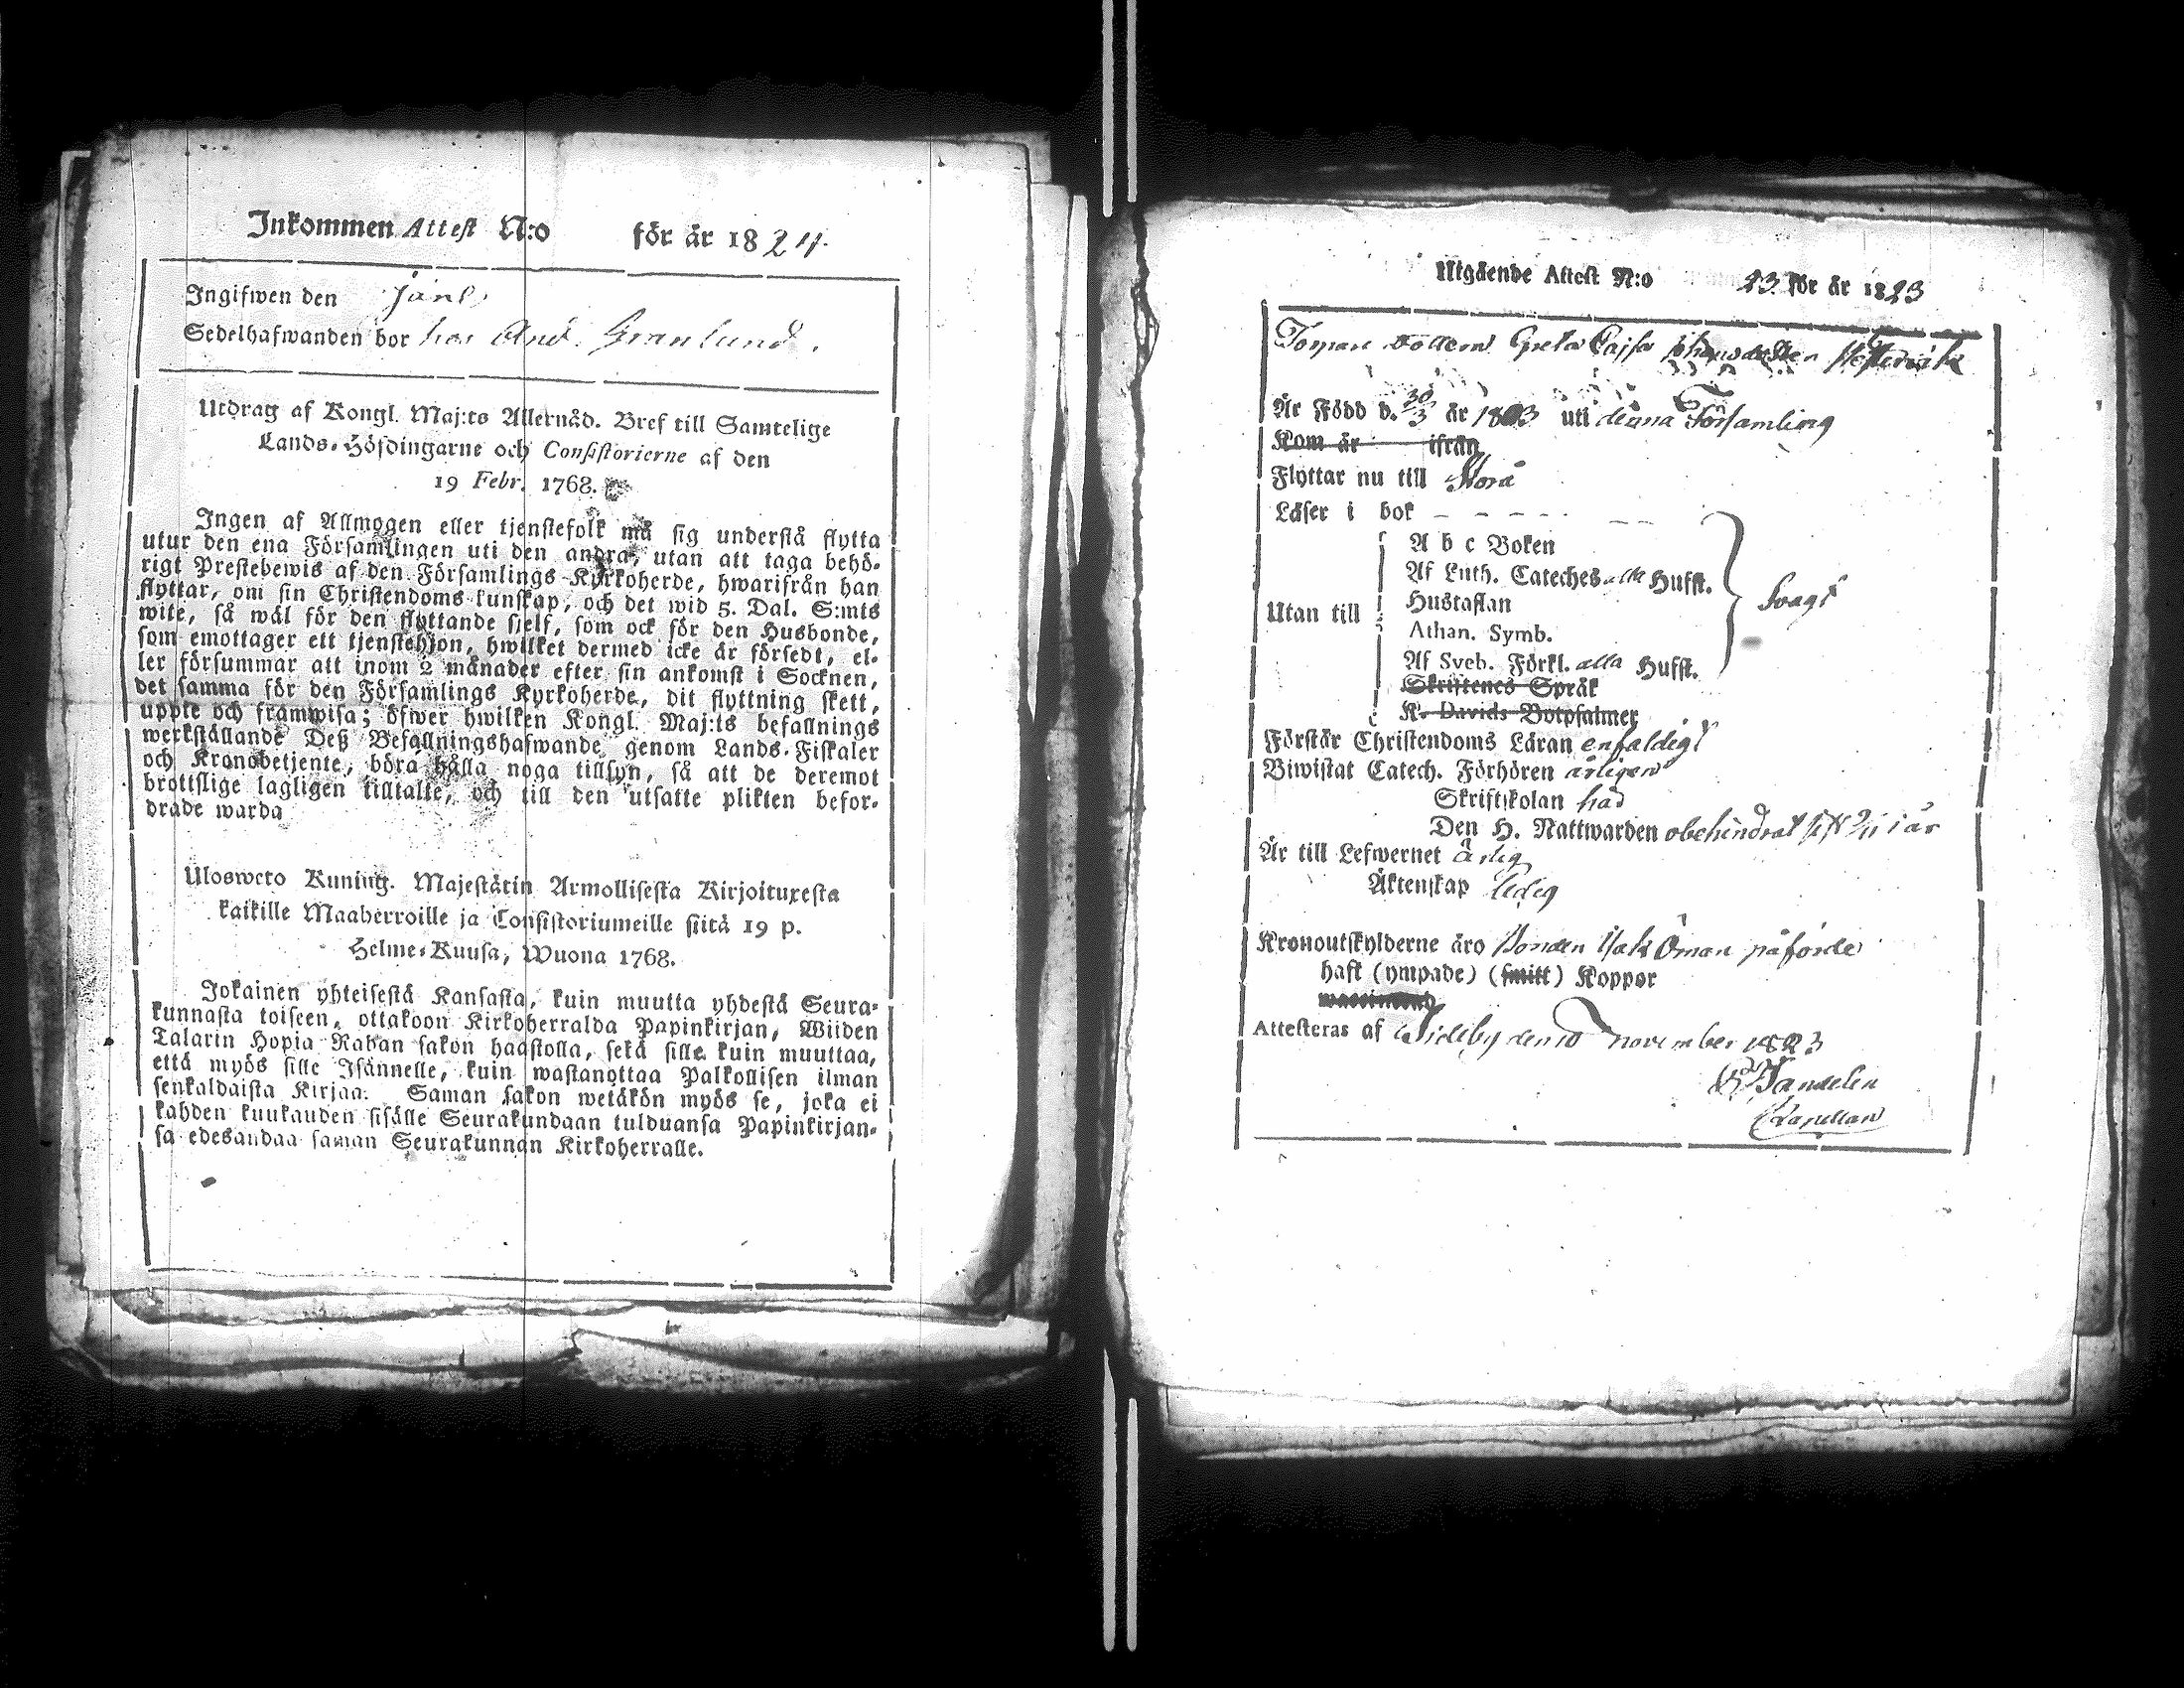 Inkommen Attest N:o för år 1824.
Ingifwen den
Sedelhafwanden bor hos And. Granlund.
Utdrag af Kongl. Maj:ts Allernåd. Bref till Samtelige
Lands-Höfdingarne och Consistorierne af den
19 Febr. 1768.
Ingen af Allmogen eller tjenstefolk må sig understå flytta
utur den ena Församlingen uti den andra, utan att taga behö-
rigt Prestebewis af den Församlings Kyrkoherde, hwarifrån han
flyttar, om sin Christendoms kunskap, och det wid 5. Dal. S:mts
wite, så wäl för den flyttande sjelf, som ock för den Husbonde,
som emottager ett tjenstehjon, hwilket dermed icke är försedt, el-
ler försummar att inom 2 månader efter sin ankomst i Socknen,
det samma för den Församlings Kyrkoherde, dit flyttning skett,
uppte och framwisa; öfwer hwilken Kongl. Maj:ts befallnings
werkställande Deß Befallningshafwande genom Lands-Fiskaler
och Kronobetjente, böra hålla noga tillsyn, så att de deremot
brottslige lagligen tilltalte, och till den utsatte plikten befor-
drade warda
Uloswcto Kuning. Majestätin Armollisesta Kirjoituxesta
kaikille Maaherroille ja Consistoriumeille siitä 19 p.
Helme-Kuusa, Wuona 1768.
Jokainen yhteisestä Kansasta, kuin muutta yhdestä Seura-
kunnasta toiseen, ottakoon Kirkoherralda Papinkirjan, Wiiden
Talarin Hopia Rahan sakon haastolla, sekä sille kuin muuttaa,
että myös sille Isännelle, kuin wastanottaa Palkollisen ilman
senkaldaista Kirjaa. Saman sakon wetäkön myös se, joka ei
kahden kuukauden sisälle Seurakundaan tulduansa Papinkirjan-
sa edesandaa saman Seurakunnan Kirkoherralle.
Utgående Attest N:o 23 för år 1823
Greta Cajsa
Är Född d. 30/3 år 1803 uti denna Församling
Kom år ifrån
Flyttar nu till
Läser i bok
A b c Boken
Af Luth. Cateches alla Hufst.
Hustaflan
Utan till
Athan. Symb.
Af Sveb. Förkl. alla Hufst.
Skriftenes Språk
K. Davids Botpsalmer
Svagt
Förstår Christendoms Läran enfaldigt
Biwistat Catech. Förhören årligen
Skriftskolan
Den H. Nattwarden obehindrat i år
Är till Lefwernet ärlig
Äktenskap ledig
Kronoutskylderne äro Bonden Isak Öman påförde
haft (ympade) (smitt) Koppor
Attesteras af Sideby den 10 November 1823
Capellan